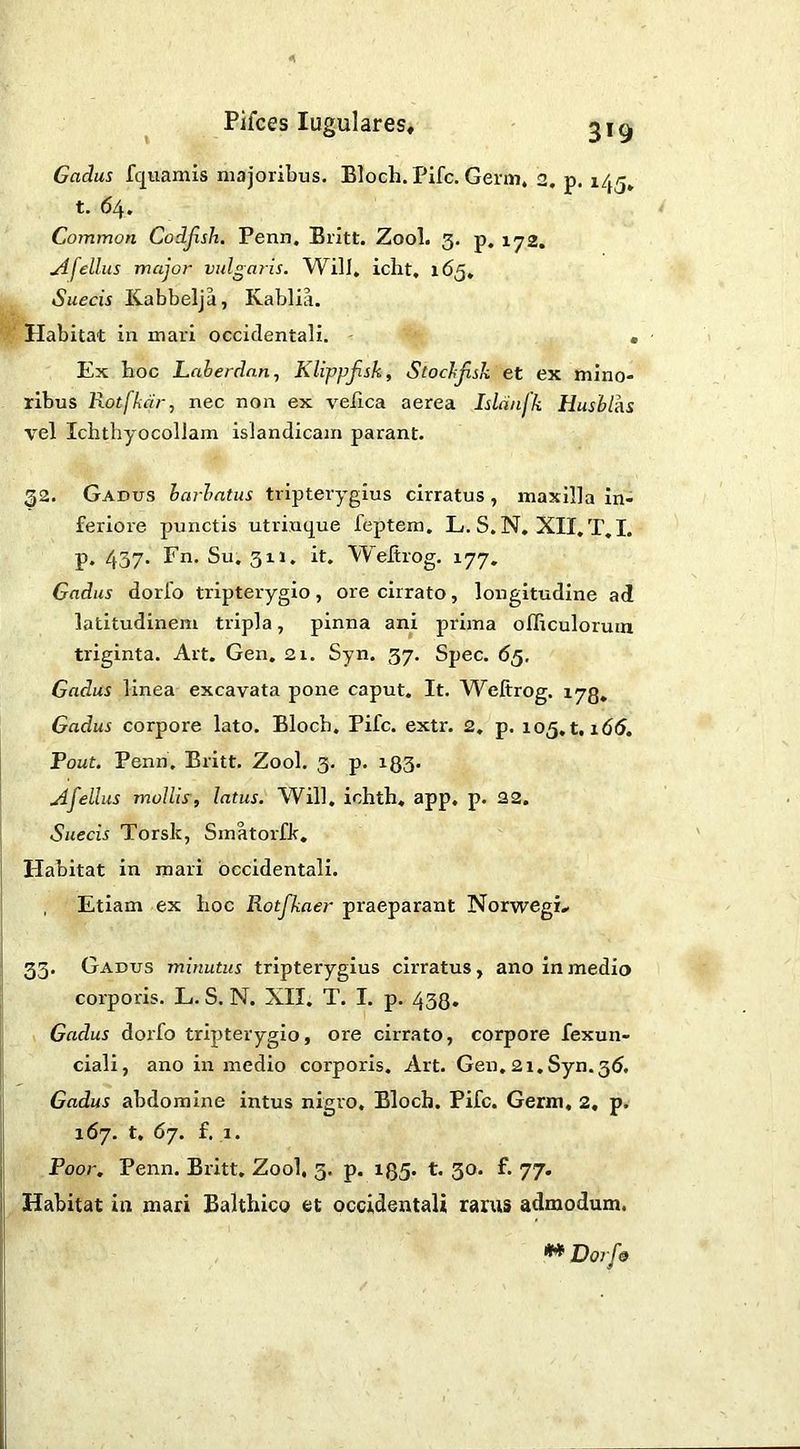 Pifces Iugulares.
319
Gadus fquamis majoribus. Bloch. Pifc. Germ. 2. p. 145.
t. 64.
Common Codfish. Penn. Britt. Zool. 3. p. 172.
Afellus major vulgaris. Will. icht. 165.
Suecis Kabbeljå, Kabliå.
Habitat in mari occidentali.
Ex hoc Laberdan, Klippfisk, Stockfisk et ex mino-
ribus Rotfkär, nec non ex vefica aerea Islänfk Husblås
vel Ichthyocollam islandicam parant.
32. Gadus barbatus tripterygius cirratus, maxilla in-
feriore punctis utrinque feptem. L. S. N. XII. T. I.
p. 437. Fn. Su. 311. it. Weftrog. 177.
Gadus dorfo tripterygio, ore cirrato, longitudine ad
latitudinem tripla, pinna ani prima officulorum
triginta. Art. Gen. 21. Syn. 37. Spec. 65.
Gadus linea excavata pone caput. It. Weftrog. 178.
Gadus corpore lato. Bloch. Pifc. extr. 2. p. 105. t. 166.
Pout. Penn. Britt. Zool. 3. p. 183.
Afellus mollis, latus. Will. ichth. app. p. 22.
Suecis Torsk, Småtorfk.
Habitat in mari occidentali.
Etiam ex hoc Rotfkaer praeparant Norwegi.
33. Gadus minutus tripterygius cirratus, ano in medio
corporis. L. S. N. XII. T. I. p. 438.
Gadus dorfo tripterygio, ore cirrato, corpore fexun-
ciali, ano in medio corporis. Art. Gen. 21. Syn. 36.
Gadus abdomine intus nigro. Bloch. Pifc. Germ. 2. p.
167. t. 67. f. 1.
Poor. Penn. Britt. Zool. 3. p. 185. t. 30. f. 77.
Habitat in mari Balthico et occidentali rarus admodum.
** Dorfo